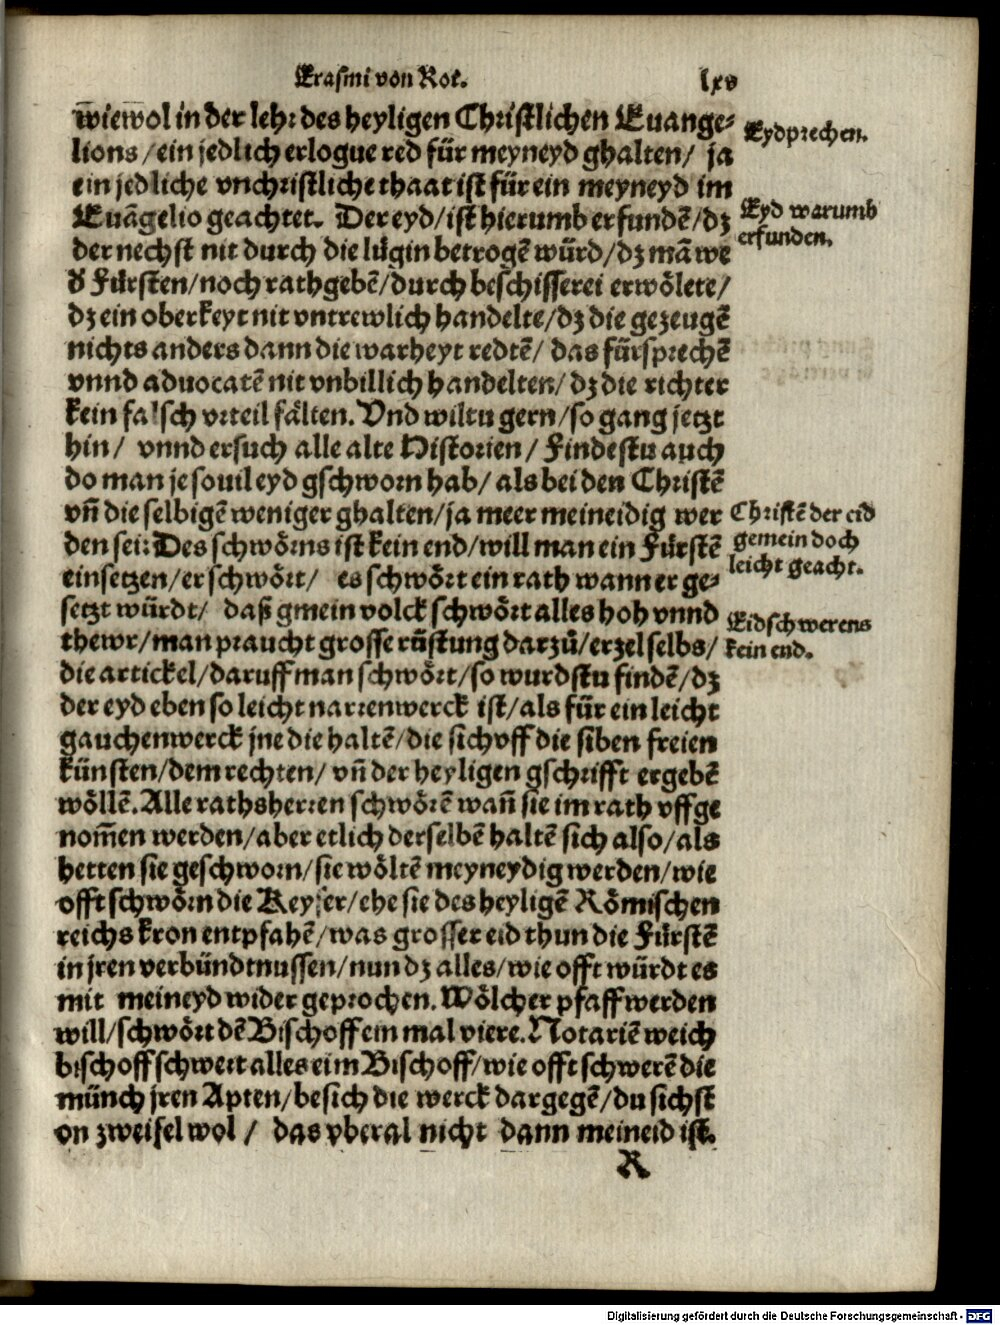 Erasmi von Rot. lxv
wiewol in der lehr des heyligen Christlichen Euange⸗
lions / ein jedlich erlogne red für meyneyd ghalten / ja
ein jedliche vnchristliche thaat ist für ein meyneyd im
Euāgelio geachtet. Der eyd / ist hierumb erfundē / dz
der nechst nit durch die lůgin betrogē würd / dz mā we
d̕ Fürsten / noch rathgebē / durch beschisserei erwölete /
dz ein oberkeyt nit vntrewlich handelte / dz die gezeugē
nichts anders dann die warheyt redtē / das fürsprechē
vnnd aduocatē nit vnbillich handelten / dz die richter
kein falsch vrteil fälten. Vnd wiltu gern / so gang jetzt
hin / vnnd ersuch alle alte Historien / Findestu auch
do man je souil eyd gschworn hab / als bei den Christē
vn̄ die selbigē weniger ghalten / ja meer meineidig wer
den sei: Des schwörns ist kein end / will man ein Fürstē
einsetzen / er schwört / es schwört ein rath wann er ge⸗
setzt würdt / daß gmein volck schwört alles hoh vnnd
thewr / man praucht grosse rüstung darzů / erzel selbs /
die artickel / daruff man schwört / so wurdstu findē / dz
der eyd eben so leicht narrenwerck ist / als für ein leicht
gauchenwerck jne die haltē / die sich vff die siben freien
künsten / dem rechten / vn̄ der heyligen gschrifft ergebē
wöllē. Alle rathsherren schwörē wan̄ sie im rath vffge
nom̄en werden / aber etlich derselbē haltē sich also / als
hetten sie geschworn / sie wöltē meyneydig werden / wie
offt schwörn die Keyser / ehe sie des heyligē Römischen
reichs kron entpfahē / was grosser eid thun die Fürstē
in jren verbündtnussen / nun dz alles / wie offt würdt es
mit meineyd wider geprochen. Wölcher pfaff werden
will / schwört dē Bischoff ein mal viere. Notariē weich
bischoff schwert alles eim Bischoff / wie offt schwerē die
münch jren Apten / besich die werck dargegē / du sichst
on zweifel wol / das vberal nicht dann meineid ist.
R
Eydprechen.
Eyd warumb
erfunden.
Christē der eid
gemein doch
leicht geacht.
Eidschwerens
kein end.
Digitalisierung gefördert durch die Deutsche Forschungsgemeinschaft - DFG